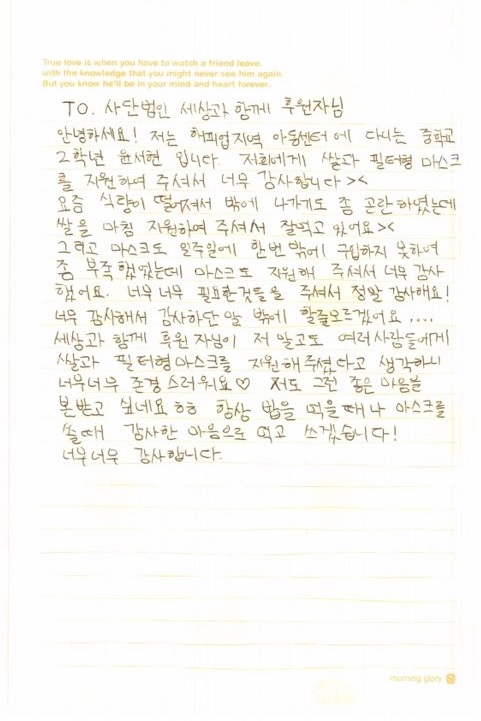 True love is when you have to watch a friend leave,
with the knowledge that you might never see him again.
But you know he'll be in your mind and heart forever.
TO. 사단법인 세상과 함께 후원자님
안녕하세요! 저는 해피업지역 아동센터에 다니는 중학교
2학년 윤서현 입니다. 저희에게 쌀과 필터형 마스크
를 지원하여 주셔서 너무 감사합니다><
요즘 식량이 떨어져서 밖에 나가기도 좀 곤란하였는데
쌀을 마침 지원하여 주셔서 잘먹고 있어요><
그리고 마스크도 일주일에 한번 밖에 구입하지 못하여
좀 부족했었는데 마스크도 지원해 주셔서 너무 감사
했어요. 너무너무 필요한것들을 주셔서 정말 감사해요!
너무 감사해서 감사하단 말 밖에 할줄모르겠어요....
세상과 함께 후원자님이 저 말고도 여러사람들에게
쌀과 필터형마스크를 지원해주셨다고 생각하니
너무너무 존경스러워요♡ 저도 그런 좋은 마음을
본받고 싶네요ㅎㅎ 항상 밥을 먹을때나 마스크를
쓸때 감사한 마음으로 먹고 쓰겠습니다!
너무너무 감사합니다.
morning glory